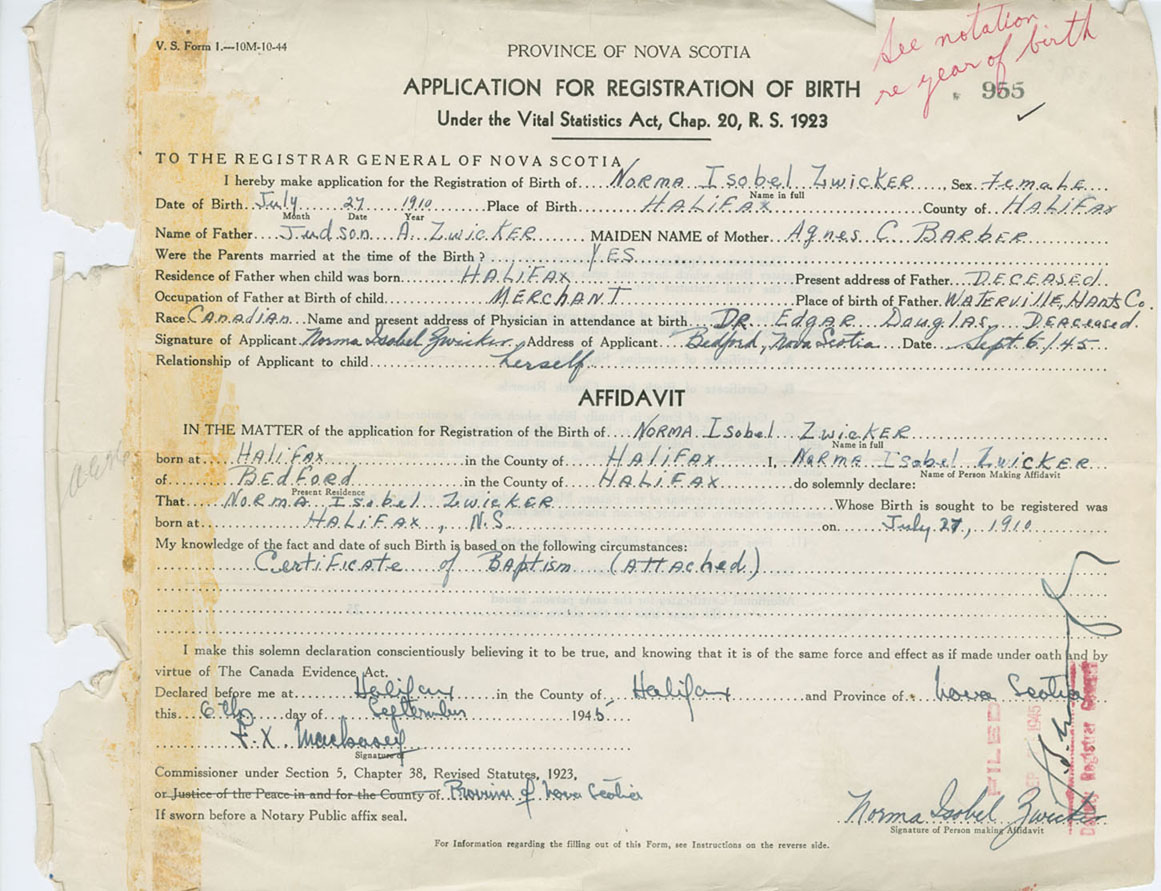 V. S. Form 1.—10M-10-44
See notation
re year of birth
PROVINCE OF NOVA SCOTIA
955
APPLICATION FOR REGISTRATION OF BIRTH
Under the Vital Statistics Act, Chap. 20, R. S. 1923
TO THE REGISTRAR GENERAL OF NOVA SCOTIA
I hereby make application for the Registration of Birth of Norma Isobel Zwicker, Sex Female
Name in full
Date of Birth July 27 1910 Place of Birth HALIFAX County of HALIFAX
Month Date Year
Name of Father Judson A. Zwicker MAIDEN NAME of Mother Agnes C. BARBER
Were the Parents married at the time of the Birth? YES
Residence of Father when child was born HALIFAX Present address of Father DECEASED
Occupation of Father at Birth of child MERCHANT Place of birth of Father WATERVILLE, Hants Co.
Race Canadian Name and present address of Physician in attendance at birth DR. Edgar Douglas DECEASED.
Signature of Applicant Norma Isobel Zwicker Address of Applicant Bedford, Nova Scotia Date Sept. 6/45
Relationship of Applicant to child herself
AFFIDAVIT
IN THE MATTER of the application for Registration of the Birth of NORMA Isobel Zwicker
Name in full
born at HALIFAX in the County of HALIFAX I, NORMA Isobel Zwicker
Name of Person Making Affidavit
of BEDFORD in the County of HALIFAX do solemnly declare:
Present Residence
That NORMA Isobel Zwicker Whose Birth is sought to be registered was
born at HALIFAX, N.S. on July 27, 1910
My knowledge of the fact and date of such Birth is based on the following circumstances:
Certificate of Baptism (Attached)
I make this solemn declaration conscientiously believing it to be true, and knowing that it is of the same force and effect as if made under oath and by
virtue of The Canada Evidence Act.
Declared before me at Halifax in the County of Halifax and Province of Nova Scotia
this 6th day of September 1945
F. X. Mackasey
Signature of
Commissioner under Section 5, Chapter 38, Revised Statutes, 1923,
or Justice of the Peace in and for the County of Province of Nova Scotia
If sworn before a Notary Public affix seal.
FILED
1945
Deputy Registrar General
Norma Isobel Zwicker
Signature of Person making Affidavit
For Information regarding the filling out of this Form, see Instructions on the reverse side.